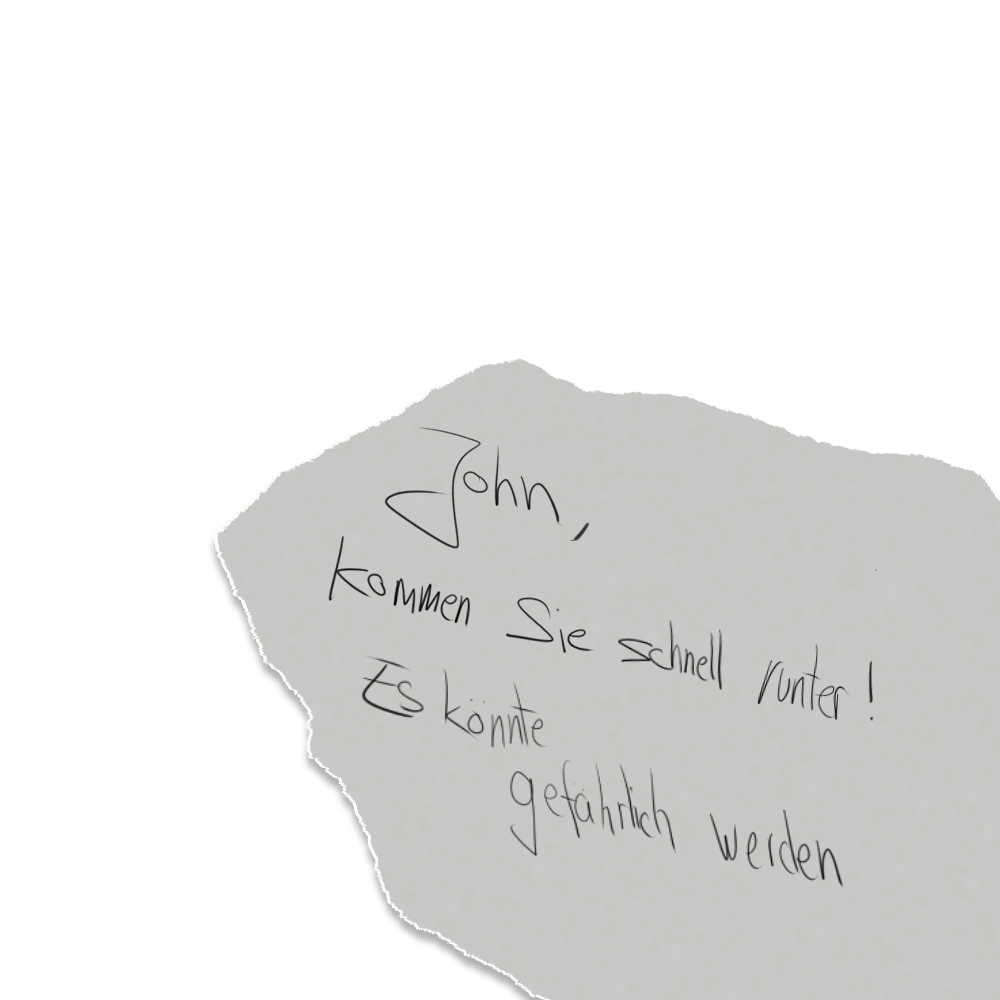 John,
kommen Sie schnell runter!
Es könnte
gefährlich werden